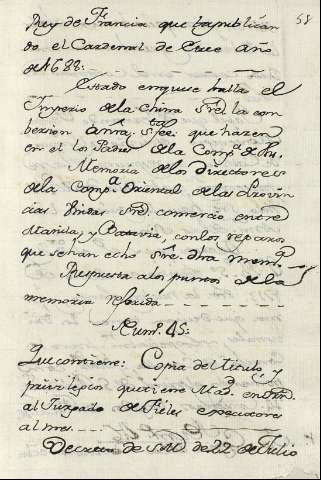 58
Rey de Francia que ba publican
do el Cardenal de Etré año
de 1688:
Estado en que se halla el
Imperio de la China sre. la con
bersion a nra. sta. fee: que hazen
en el los Padres de la Compª. de Jhs.
Memoria de los Directores
de la Compª. Oriental de las Provin
cias Unidas sre. comercio entre
Manila, y Batavia, con los reparos
que se han echo sre. dha memª.
Respuesta a los puntos de la
memoria referida.
Numº. 45:
Que contiene: Copia del titulo, y
privilejios que tiene Madd. en
al Juzgado de Fieles executores
al mes.
Decreto de S.M. de 22 de Julio